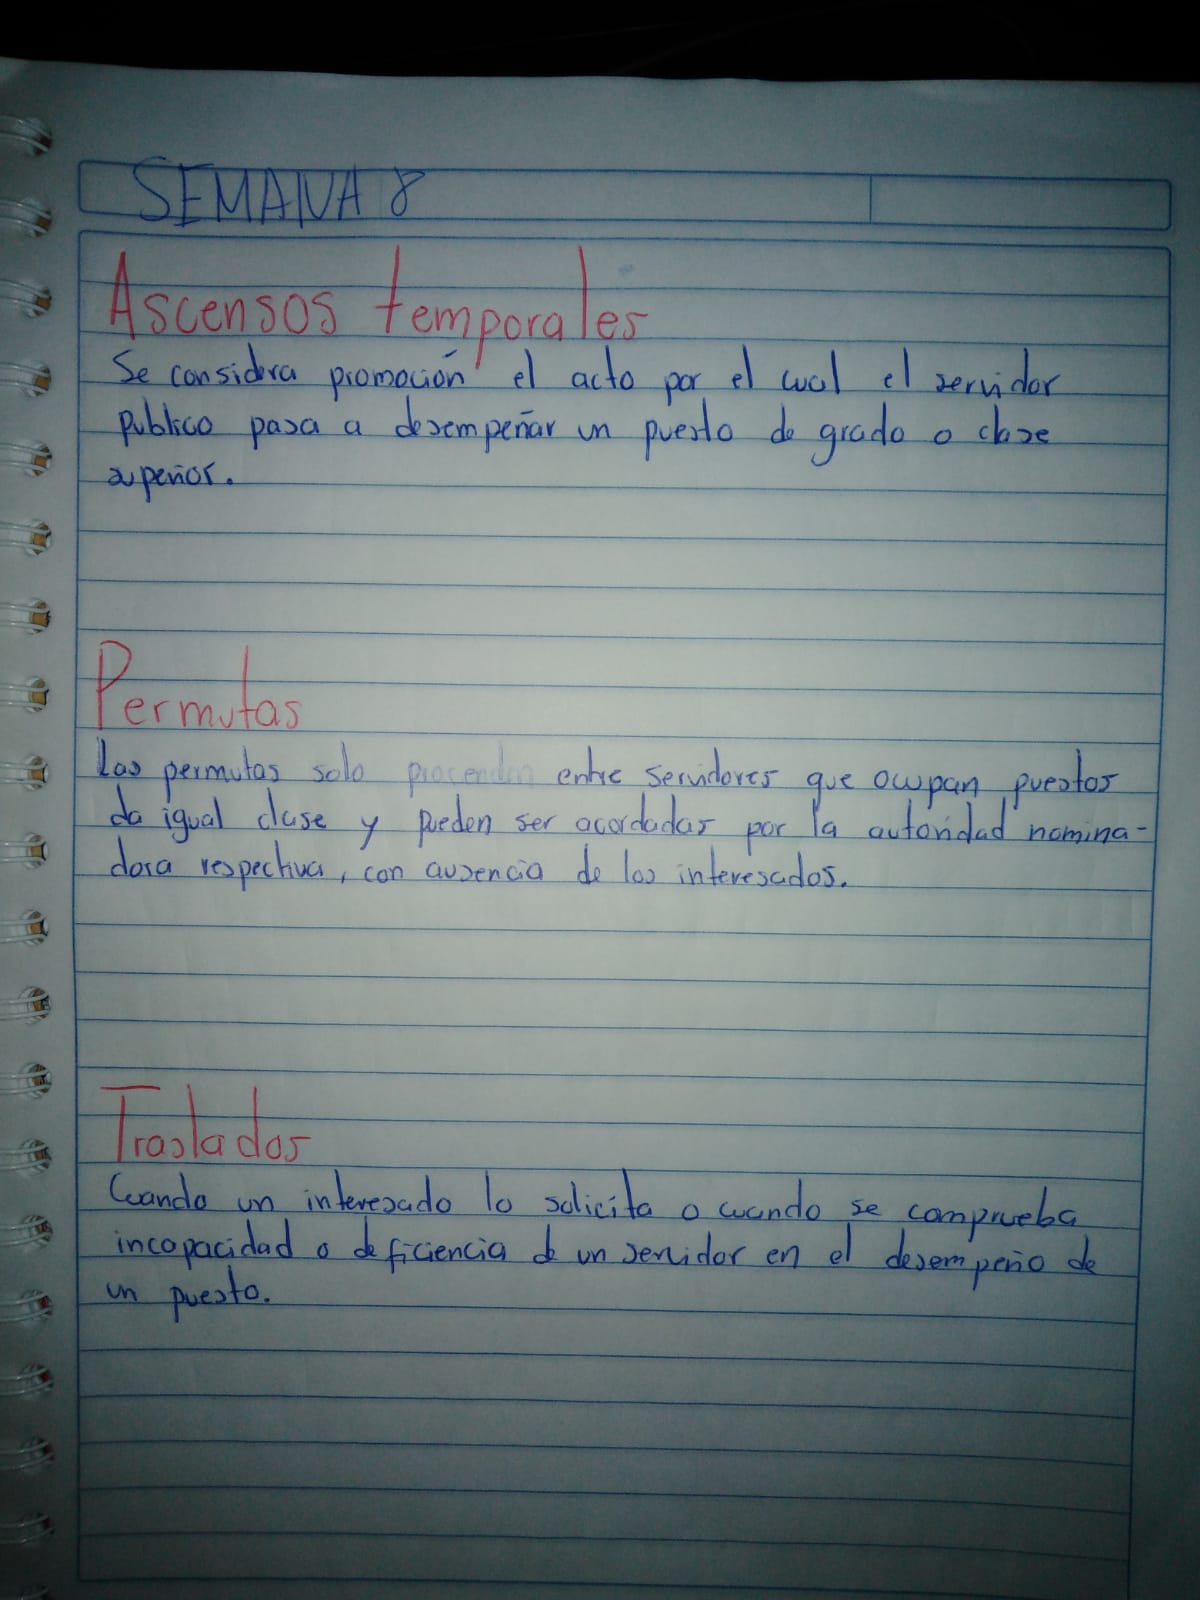 SEMANA 8
Ascensos temporales
Se considera promoción el acto por el cual el servidor
publico pasa a desempeñar un puesto de grado o clase
superior.
Permutas
Las permutas solo procenden entre servidores que ocupan puestos
de igual clase y pueden ser acordadas por la autoridad nomina-
dora respectiva, con ausencia de los interesados.
Traslados
Cuando un interesado lo solicita o cuando se comprueba
incapacidad o deficiencia de un servidor en el desempeño de
un puesto.